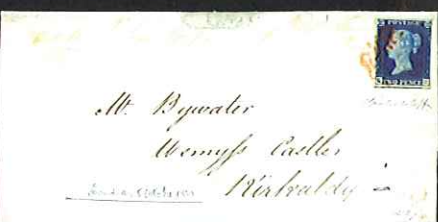 POSTAGE
TWO PENCE
Mr. Bywater
Wemyss Castle
Kirkaldy